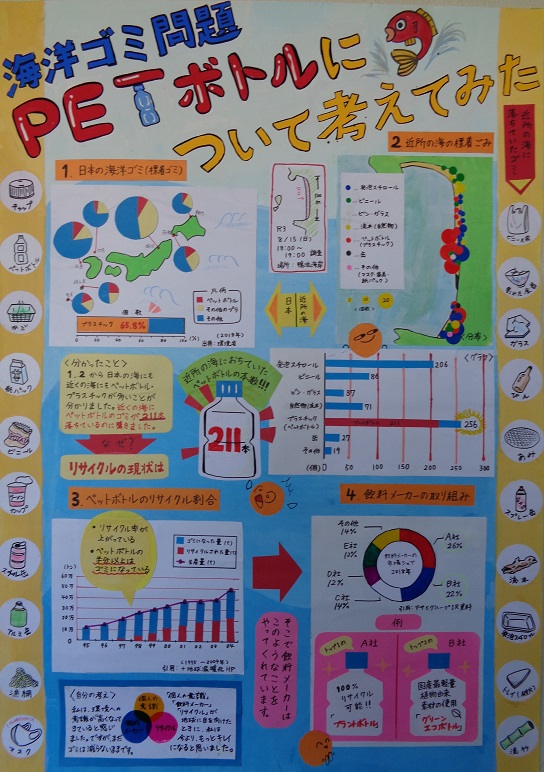 海洋ゴミ問題
PETボトルに
ついて考えてみた
近所の海に
落ちていたゴミ
1. 日本の海洋ゴミ(漂着ゴミ)
凡例
ペットボトル
その他のプラ
その他
個数
プラスチック 65.8%
R3
8/15(日)
調査
日本
近所の海
2 近所の海の漂着ごみ
発泡スチロール
ビニール
ビン・ガラス
流木(自然物)
ペットボトル
(プラスチック)
缶
その他
<分布>
<分かったこと>
1.2から日本の海にも
近くの海にもペットボトル・
プラスチックが多いことが
分かりました。近くの海に
ペットボトルのゴミが211本
落ちているのに驚きました。
なぜ?
リサイクルの現状は
近所の海におちていた
ペットボトルの本数!!!
211本
<グラフ>
発泡スチロール 206
ビニール 86
ビン・ガラス 37
自然物(流木) 71
プラスチック
(ペットボトル) 256
缶 27
その他 19
(個) 0 50 100 150 200 250 300
3. ペットボトルのリサイクル割合
・リサイクル率が
上がっている
・ペットボトルの
半分以上は
ゴミになっている
ゴミになった量(t)
リサイクルされた量(t)
生産量(t)
(トン)
60万
50万
40万
30万
20万
10万
95 96 97 98 99 00 01 02 03 04
4. 飲料メーカーの取り組み
飲料メーカーの
2018年
A社
26%
B社
22%
C社
14%
D社
12%
E社
12%
その他
14%
例
そこで飲料メーカーは
このようなことを
やってくれています。
トップ1の A社
100%
リサイクル
可能!!
プラントボトル
トップ2の B社
国産最軽量
植物由来
素材の使用
グリーン
エコボトル
<自分の考え>
私は、環境への
意識が高くなって
きていると感じ
ました。ですが、まだ
ゴミは減らないままです。
個人の意識
リサイクル
「個人の意識」
「飲料メーカー」
「リサイクル」が
地球に目を向けた
ときに、私は
今より、もっとキレイ
になると思いました。
キャップ
ペットボトル
かご
紙パック
ビニール
カップ
アルミ缶
漁網
マスク
ビニール袋
ガラス
びん
あみ
スプレー缶
流木
トレイ